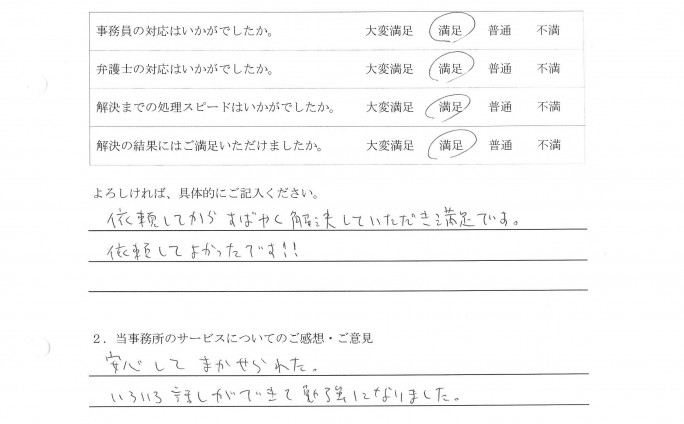 事務員の対応はいかがでしたか。 大変満足 満足 普通 不満
弁護士の対応はいかがでしたか。 大変満足 満足 普通 不満
解決までの処理スピードはいかがでしたか。 大変満足 満足 普通 不満
解決の結果にはご満足いただけましたか。 大変満足 満足 普通 不満
よろしければ、具体的にご記入ください。
依頼してから すばやく解決していただき満足です。
依頼してよかったです!!
2．当事務所のサービスについてのご感想・ご意見
安心して まかせられた。
いろいろ話しができて勉強になりました。